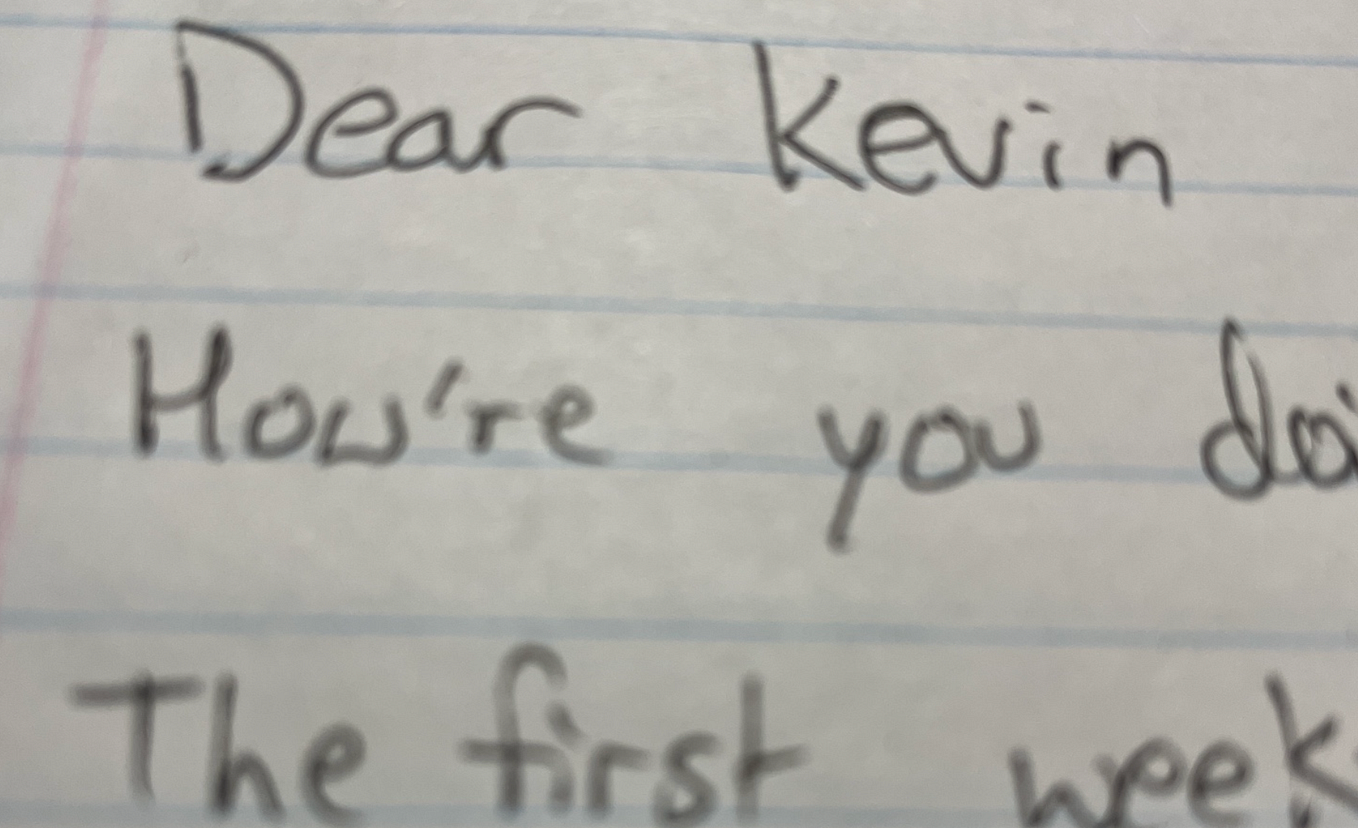 Dear Kevin
How're you doi
The first week